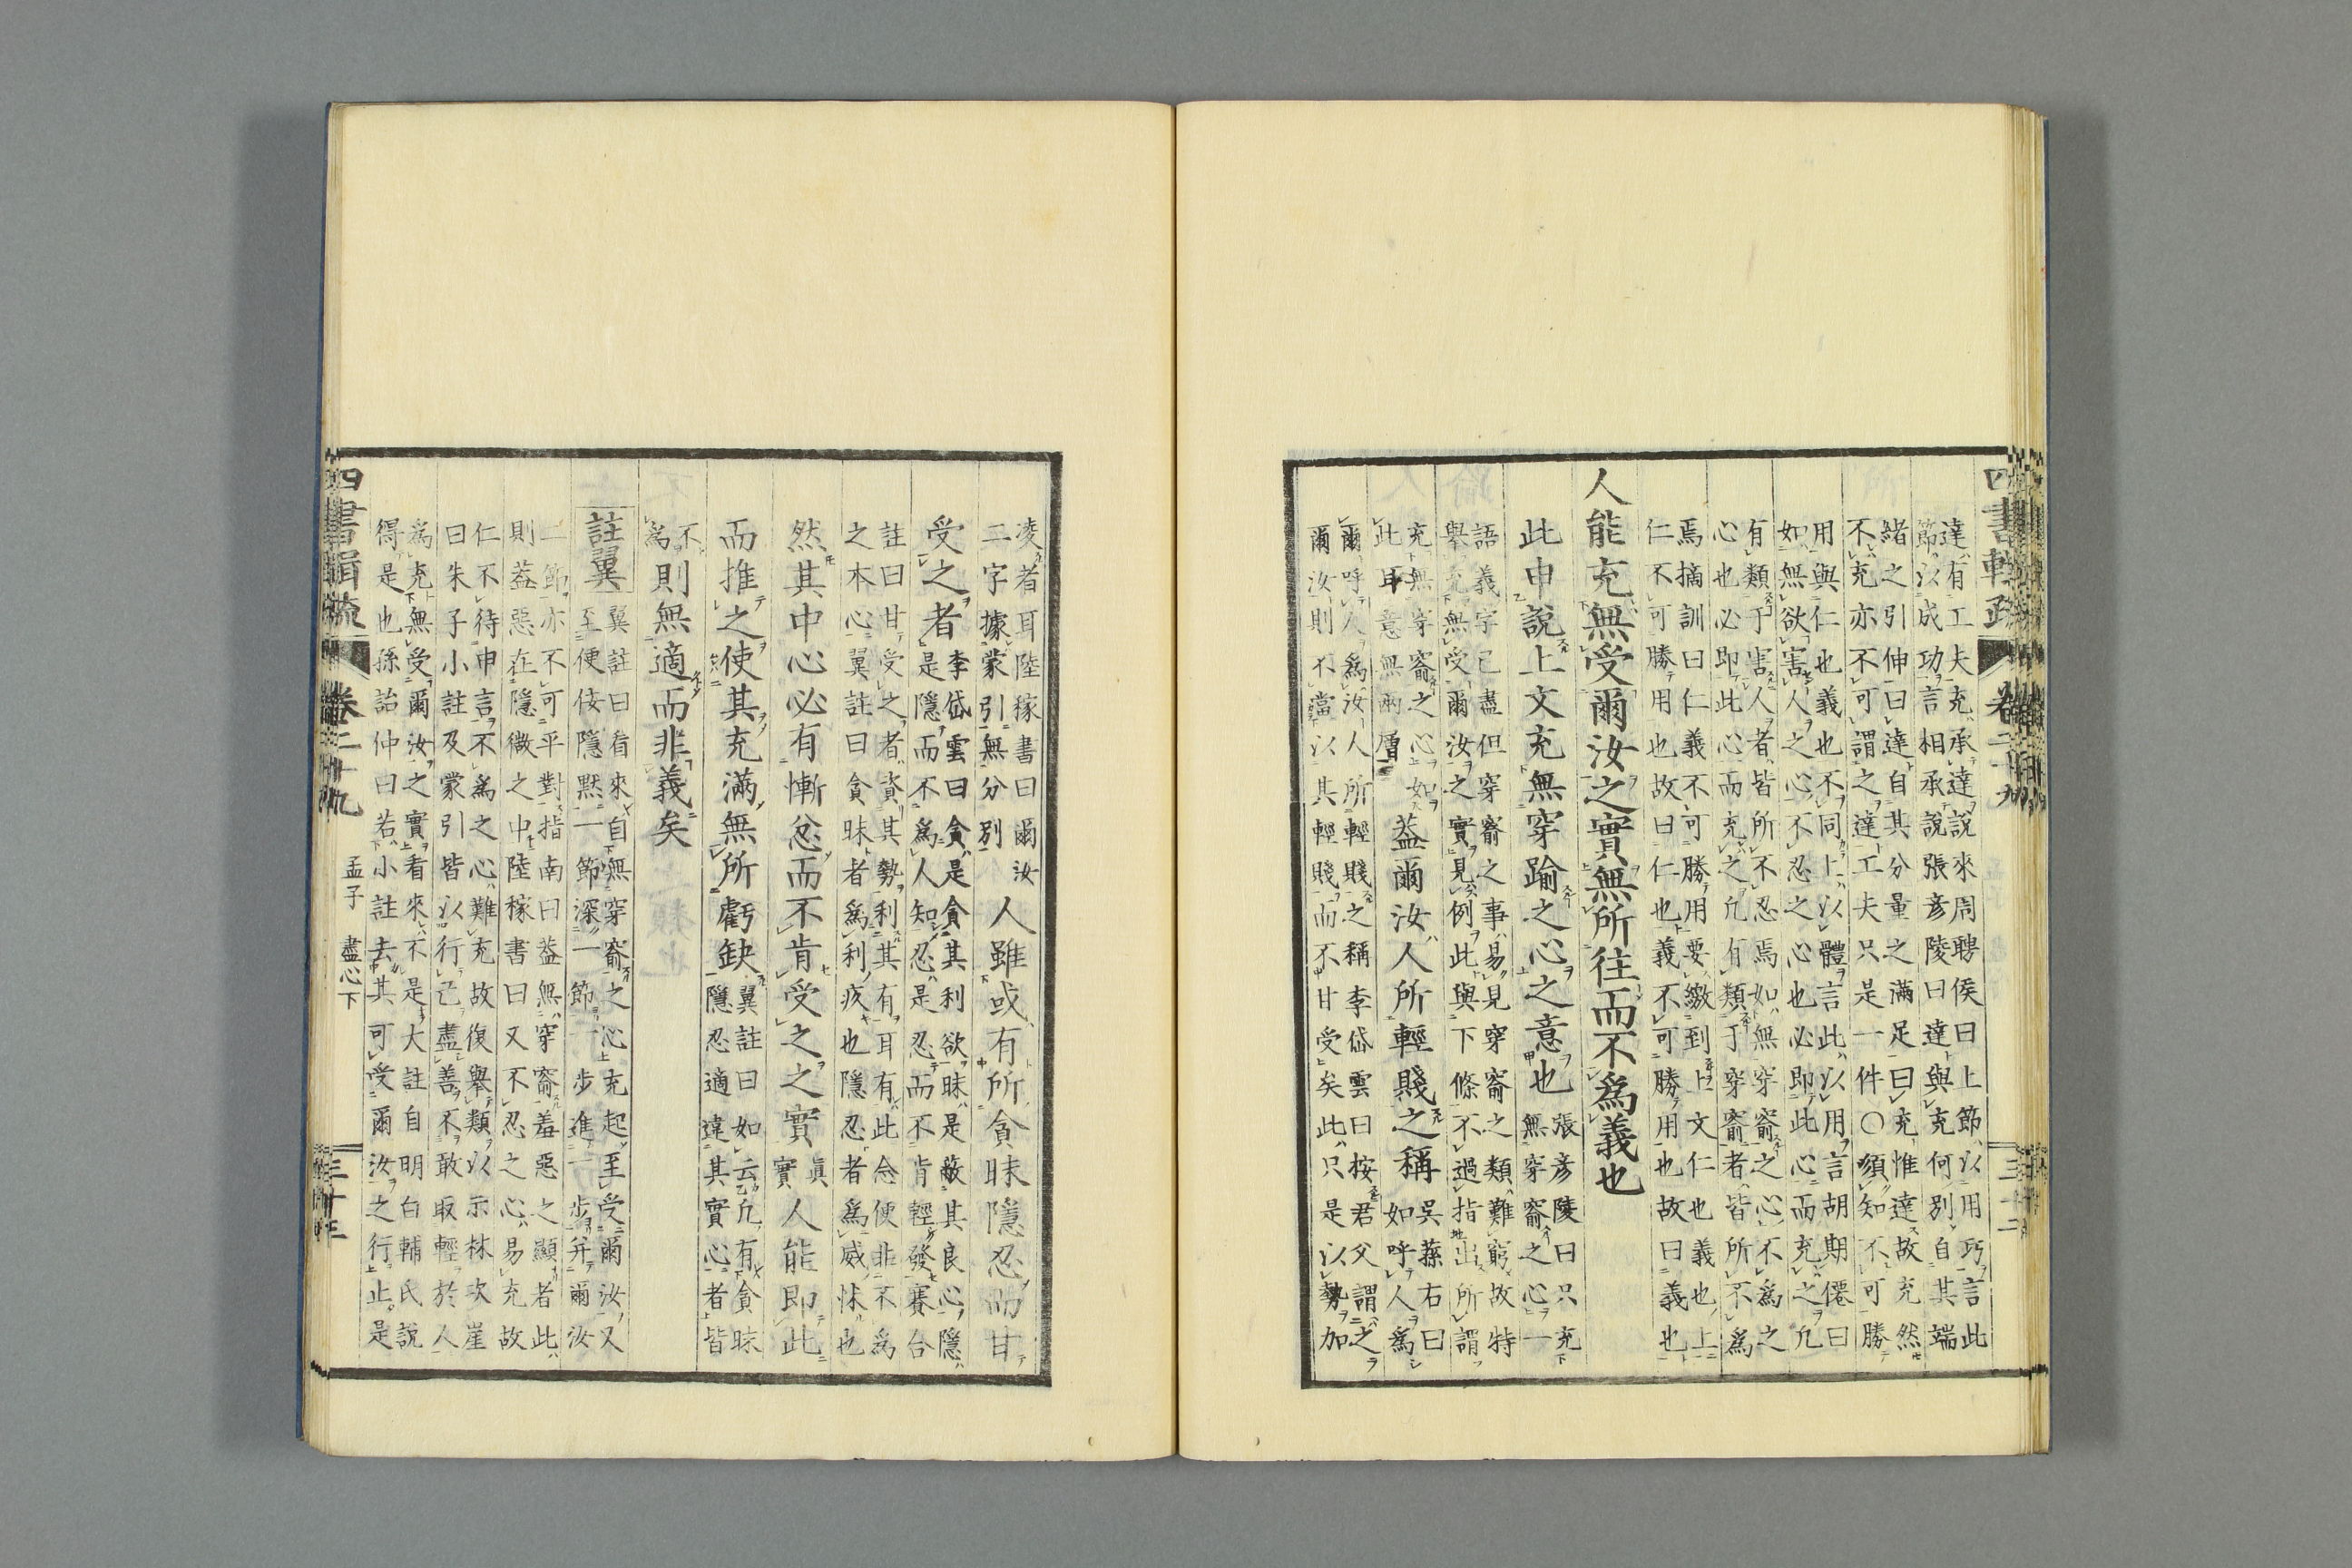 四書輯疏
卷二十九
三十二
達有工夫充承達說來周聘侯曰上節以用巧言此
節以成功言相承說張彥陵曰達與充何別自其端
緒之引伸曰達自其分量之滿足曰充惟達故充然
不充亦不可謂之達工夫只是一件○須知不可勝
用與仁也義也不同上以體言此以用言胡期僊曰
如無欲害人之心不忍之心也必即此心而充之凡
有類于害人者皆所不忍焉如無穿窬之心不為之
心也必即此心而充之凡有類于穿窬者皆所不為
焉摘訓曰仁義不可勝用要繳到上文仁也義也上
仁不可勝用也故曰仁也義不可勝用也故曰義也
人能充無受爾汝之實無所往而不為義也
此申說上文充無穿踰之心之意也
張彥陵曰只充
無穿窬之心一
語義字已盡但穿窬之事易見穿窬之類難窮故特
舉充無受爾汝之實見例此與下條不過指出所謂
充無穿窬之心如
此耳意無兩層
蓋爾汝人所輕賤之稱
吳蓀右曰
如呼人為
爾呼人為汝人所輕賤之稱李岱雲曰按君父謂之
爾汝則不當以其輕賤而不甘受矣此只是以勢加
凌者耳陸稼書曰爾汝
二字據蒙引無分別
人雖或有所貪昧隱忍而甘
受之者
李岱雲曰貪是貪其利欲昧是蔽其良心隱
是隱而不為人知忍是忍而不肯輕發賽合
註曰甘受之者資其勢利其有耳有此念便非不為
之本心翼註曰貪昧者為利疚也隱忍者為威怵也
然其中心必有慚忿而不肯受之之實
真
實
人能即此
而推之使其充滿無所虧缺
翼註曰如云凡有貪昧
隱忍適違其實心者皆
不
為
則無適而非義矣
註翼
翼註曰看來自無穿窬之心充起至受爾汝又
至便佞隱默一節深一節一步進一步并爾汝
二節亦不可平對指南曰蓋無穿窬羞惡之顯者此
則蓋惡在隱微之中陸稼書曰又不忍之心易充故
仁不待申言不為之心難充故復舉類以示林次崖
曰朱子小註及蒙引皆以行己盡善不敢取輕於人
為充無受爾汝之實看來不是大註自明白輔氏說
得是也孫詒仲曰若小註去其可受爾汝之行止是
四書輯疏
卷二十九
孟子 盡心下
三十三